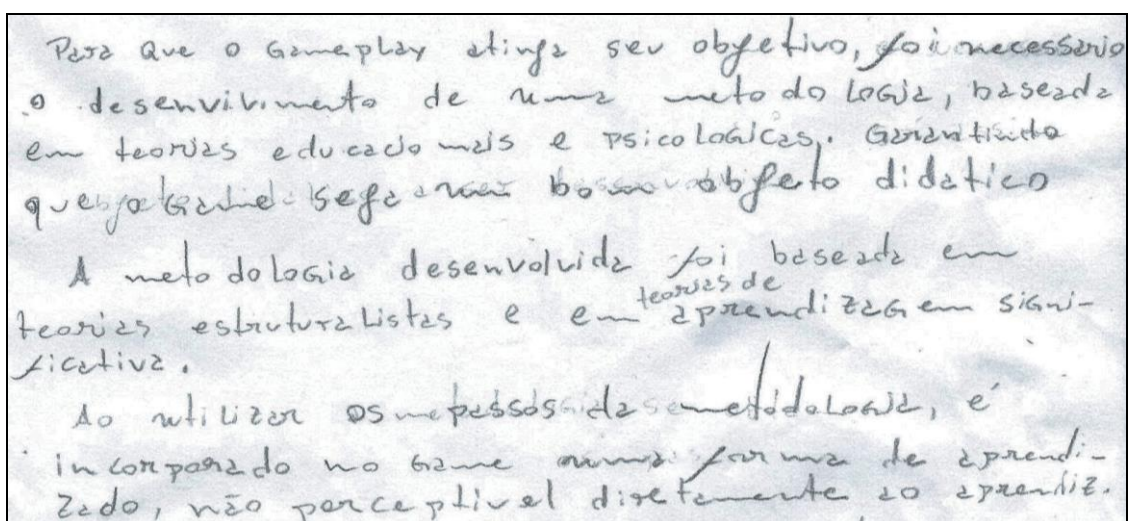 Para Que o Gameplay atinja seu objetivo, foi necessario
o desenvivimento de uma metodologia, baseada
em teorias educacionais e psicologicas. Garantindo
que o Game seja um bom objeto didatico
A metodologia desenvolvida foi baseada em
teorias estruturalistas e em teorias de aprendizagem signi-
ficativa.
Ao utilizar os passos da metodologia, é
incorporado no Game uma forma de aprendi-
zado, não perceptivel diretamente ao aprendiz.